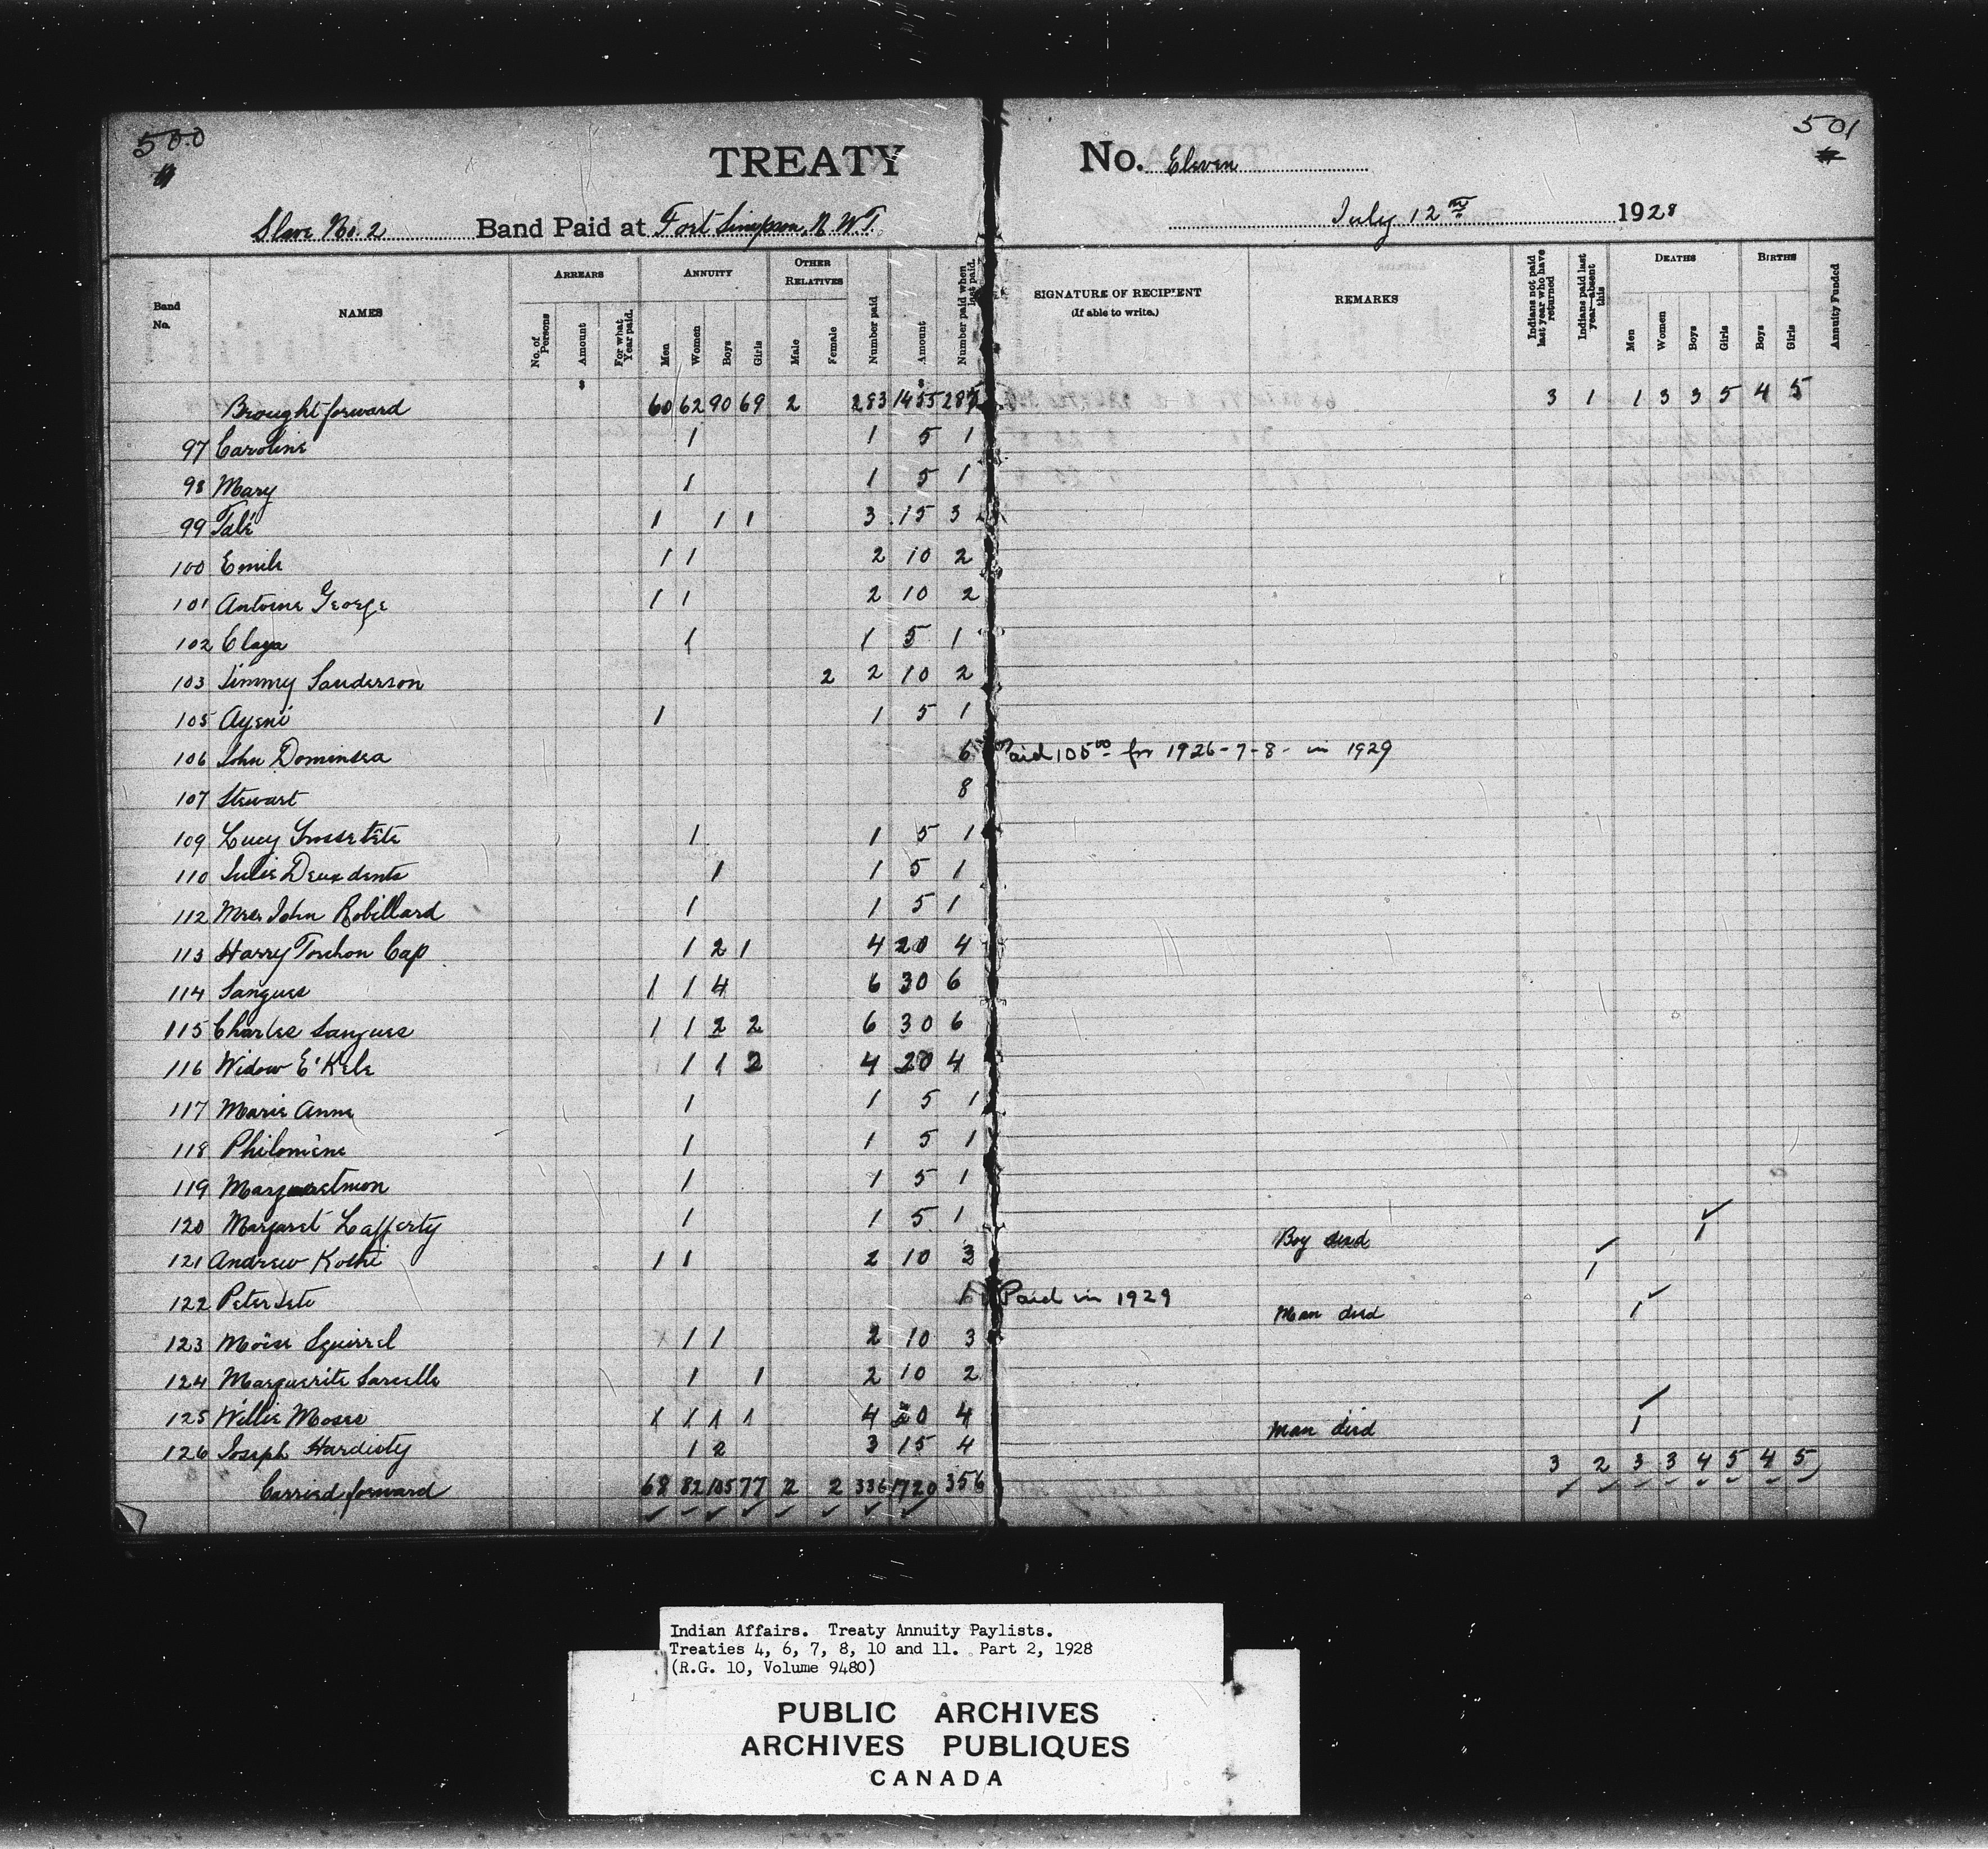 500
501
TREATY No. Eleven
Slave No. 2 Band Paid at Fort Simpson, N.W.T. July 12th 1928
Band No. NAMES ARREARS No. of Persons Amount For what Year paid. ANNUITY Men Women Boys Girls OTHER RELATIVES Male Female Number paid Amount Number paid when last paid. SIGNATURE OF RECIPIENT (If able to write.) REMARKS Indians not paid last year who have returned Indians paid last year—absent this DEATHS Men Women Boys Girls BIRTHS Boys Girls Annuity Funded
$ $
Brought forward 60 62 90 69 2 283 1455 287 3 1 1 3 3 5 4 5
97 Caroline 1 1 5 1
98 Mary 1 1 5 1
99 Talé 1 1 1 3 15 3
100 Emile 1 1 2 10 2
101 Antoine George 1 1 2 10 2
102 Claya 1 1 5 1
103 Jimmy Sanderson 2 2 10 2
105 Ayeni 1 1 5 1
106 John Dominsea 6 Paid 105.00 for 1926-7-8- in 1929
107 Stewart 8
109 Lucy Grosse tête 1 1 5 1
110 Julie Deux dents 1 1 5 1
112 Mrs John Robillard 1 1 5 1
113 Harry Torchon Cap 1 2 1 4 20 4
114 Sangues 1 1 4 6 30 6
115 Charles Sangues 1 1 2 2 6 30 6
116 Widow E'Kele 1 1 2 4 20 4
117 Marie Anne 1 1 5 1
118 Philomène 1 1 5 1
119 1 1 5 1
120 Margaret Lafferty 1 1 5 1 Boy died 1
121 Andrew 1 1 2 10 3 1
122 Peter Paid in 1929 Man died 1
123 Moïse Squirrel 1 1 2 10 3
124 Marguerite Sarcelle 1 1 2 10 2
125 Willie Moses 1 1 1 1 4 20 4 Man died 1
126 Joseph Hardisty 1 2 3 15 4
Carried forward 68 82 105 77 2 2 336 1720 356 3 2 3 3 4 5 4 5
Indian Affairs. Treaty Annuity Paylists.
Treaties 4, 6, 7, 8, 10 and 11. Part 2, 1928
(R.G. 10, Volume 9480)
PUBLIC ARCHIVES
ARCHIVES PUBLIQUES
CANADA